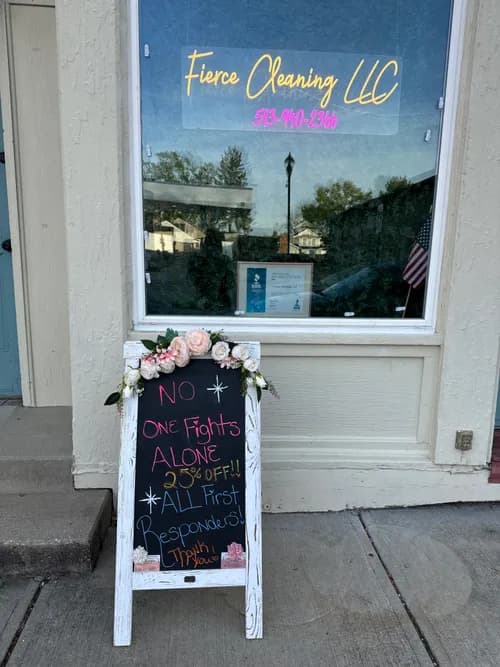 Fierce Cleaning LLC
513-940-2366
NO
ONE Fights
ALONE
25% OFF!!
ALL First
Responders!
Thank
you